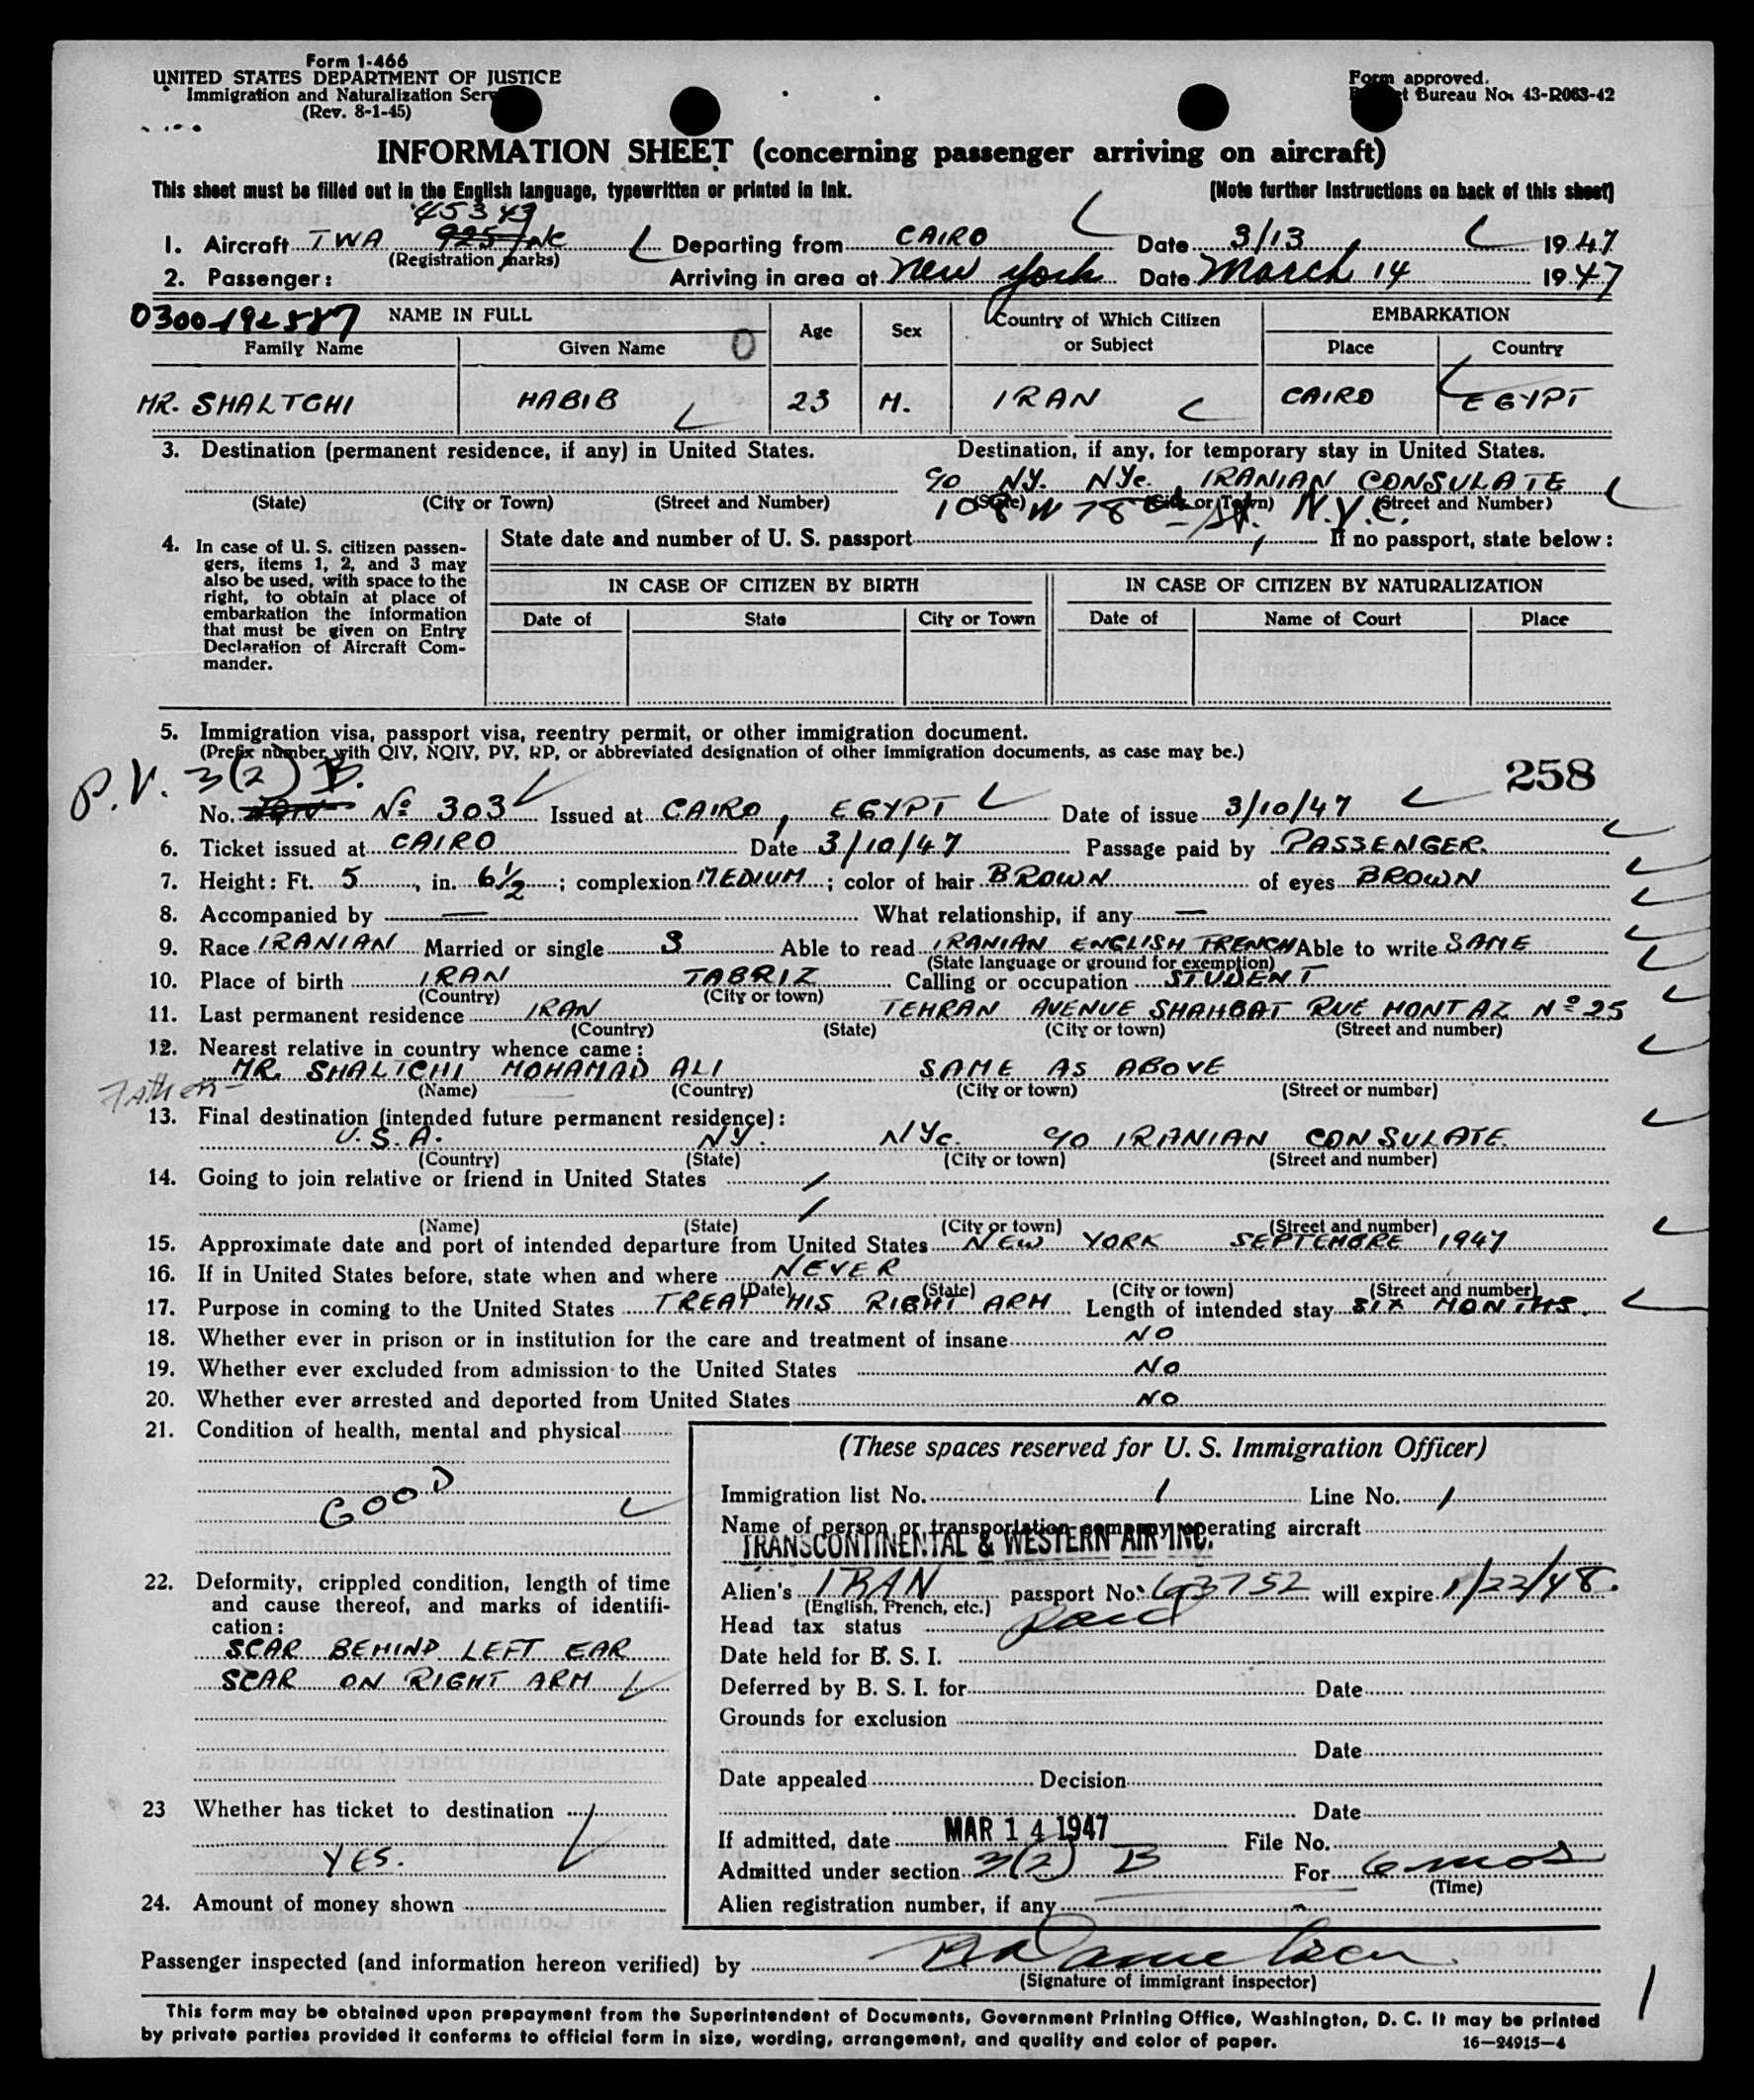 Form 1-466
UNITED STATES DEPARTMENT OF JUSTICE
Immigration and Naturalization Serv
(Rev. 8-1-45)
Form approved.
t Bureau No. 43-R063-42
INFORMATION SHEET (concerning passenger arriving on aircraft)
This sheet must be filled out in the English language, typewritten or printed in ink.
(Note further instructions on back of this sheet)
45343
1. Aircraft TWA 925 NC Departing from CAIRO Date 3/13 1947
(Registration marks)
2. Passenger: Arriving in area at New York Date March 14 1947
0300-192887 NAME IN FULL Age Sex Country of Which Citizen or Subject EMBARKATION
Family Name Given Name Place Country
MR. SHALTCHI HABIB 23 M. IRAN CAIRO EGYPT
3. Destination (permanent residence, if any) in United States. Destination, if any, for temporary stay in United States.
c/o NY. NYc. IRANIAN CONSULATE
(State) (City or Town) (Street and Number) (State) (City or Town) (Street and Number)
108 W 78 St. N.Y.C.
4. In case of U. S. citizen passen-
gers, items 1, 2, and 3 may
also be used, with space to the
right, to obtain at place of
embarkation the information
that must be given on Entry
Declaration of Aircraft Com-
mander.
State date and number of U. S. passport If no passport, state below:
IN CASE OF CITIZEN BY BIRTH IN CASE OF CITIZEN BY NATURALIZATION
Date of State City or Town Date of Name of Court Place
5. Immigration visa, passport visa, reentry permit, or other immigration document.
(Prefix number with QIV, NQIV, PV, RP, or abbreviated designation of other immigration documents, as case may be.)
P.V. 3(2) B. 258
No. Nº 303 Issued at CAIRO, EGYPT Date of issue 3/10/47
6. Ticket issued at CAIRO Date 3/10/47 Passage paid by PASSENGER.
7. Height: Ft. 5, in. 6½; complexion MEDIUM; color of hair BROWN of eyes BROWN
8. Accompanied by — What relationship, if any —
9. Race IRANIAN Married or single S Able to read IRANIAN ENGLISH FRENCH Able to write SAME
(State language or ground for exemption)
10. Place of birth IRAN TABRIZ Calling or occupation STUDENT
(Country) (City or town)
11. Last permanent residence IRAN TEHRAN AVENUE SHAHBAT RUE MONTAZ Nº 25
(Country) (State) (City or town) (Street and number)
12. Nearest relative in country whence came:
MR. SHALTCHI MOHAMAD ALI SAME AS ABOVE
Father- (Name) (Country) (City or town) (Street or number)
13. Final destination (intended future permanent residence):
U.S.A. NY. NYc. c/o IRANIAN CONSULATE
(Country) (State) (City or town) (Street and number)
14. Going to join relative or friend in United States /
/
(Name) (State) (City or town) (Street and number)
15. Approximate date and port of intended departure from United States NEW YORK SEPTEMBRE 1947
16. If in United States before, state when and where NEVER
(Date) (State) (City or town) (Street and number)
17. Purpose in coming to the United States TREAT HIS RIGHT ARM Length of intended stay SIX MONTHS.
18. Whether ever in prison or in institution for the care and treatment of insane NO
19. Whether ever excluded from admission to the United States NO
20. Whether ever arrested and deported from United States NO
21. Condition of health, mental and physical
GOOD
22. Deformity, crippled condition, length of time
and cause thereof, and marks of identifi-
cation:
SCAR BEHIND LEFT EAR
SCAR ON RIGHT ARM
23 Whether has ticket to destination
YES.
24. Amount of money shown
(These spaces reserved for U. S. Immigration Officer)
Immigration list No. 1 Line No. 1
Name of person or transportation company operating aircraft
TRANSCONTINENTAL & WESTERN AIR INC.
Alien's IRAN passport No. 63752 will expire 1/22/48.
(English, French, etc.)
Head tax status paid
Date held for B. S. I.
Deferred by B. S. I. for Date
Grounds for exclusion
Date
Date appealed Decision
Date
If admitted, date MAR 14 1947 File No.
Admitted under section 3(2) B For 6 mos
(Time)
Alien registration number, if any
Passenger inspected (and information hereon verified) by
(Signature of immigrant inspector)
This form may be obtained upon prepayment from the Superintendent of Documents, Government Printing Office, Washington, D. C. It may be printed
by private parties provided it conforms to official form in size, wording, arrangement, and quality and color of paper. 16—24915-4
1